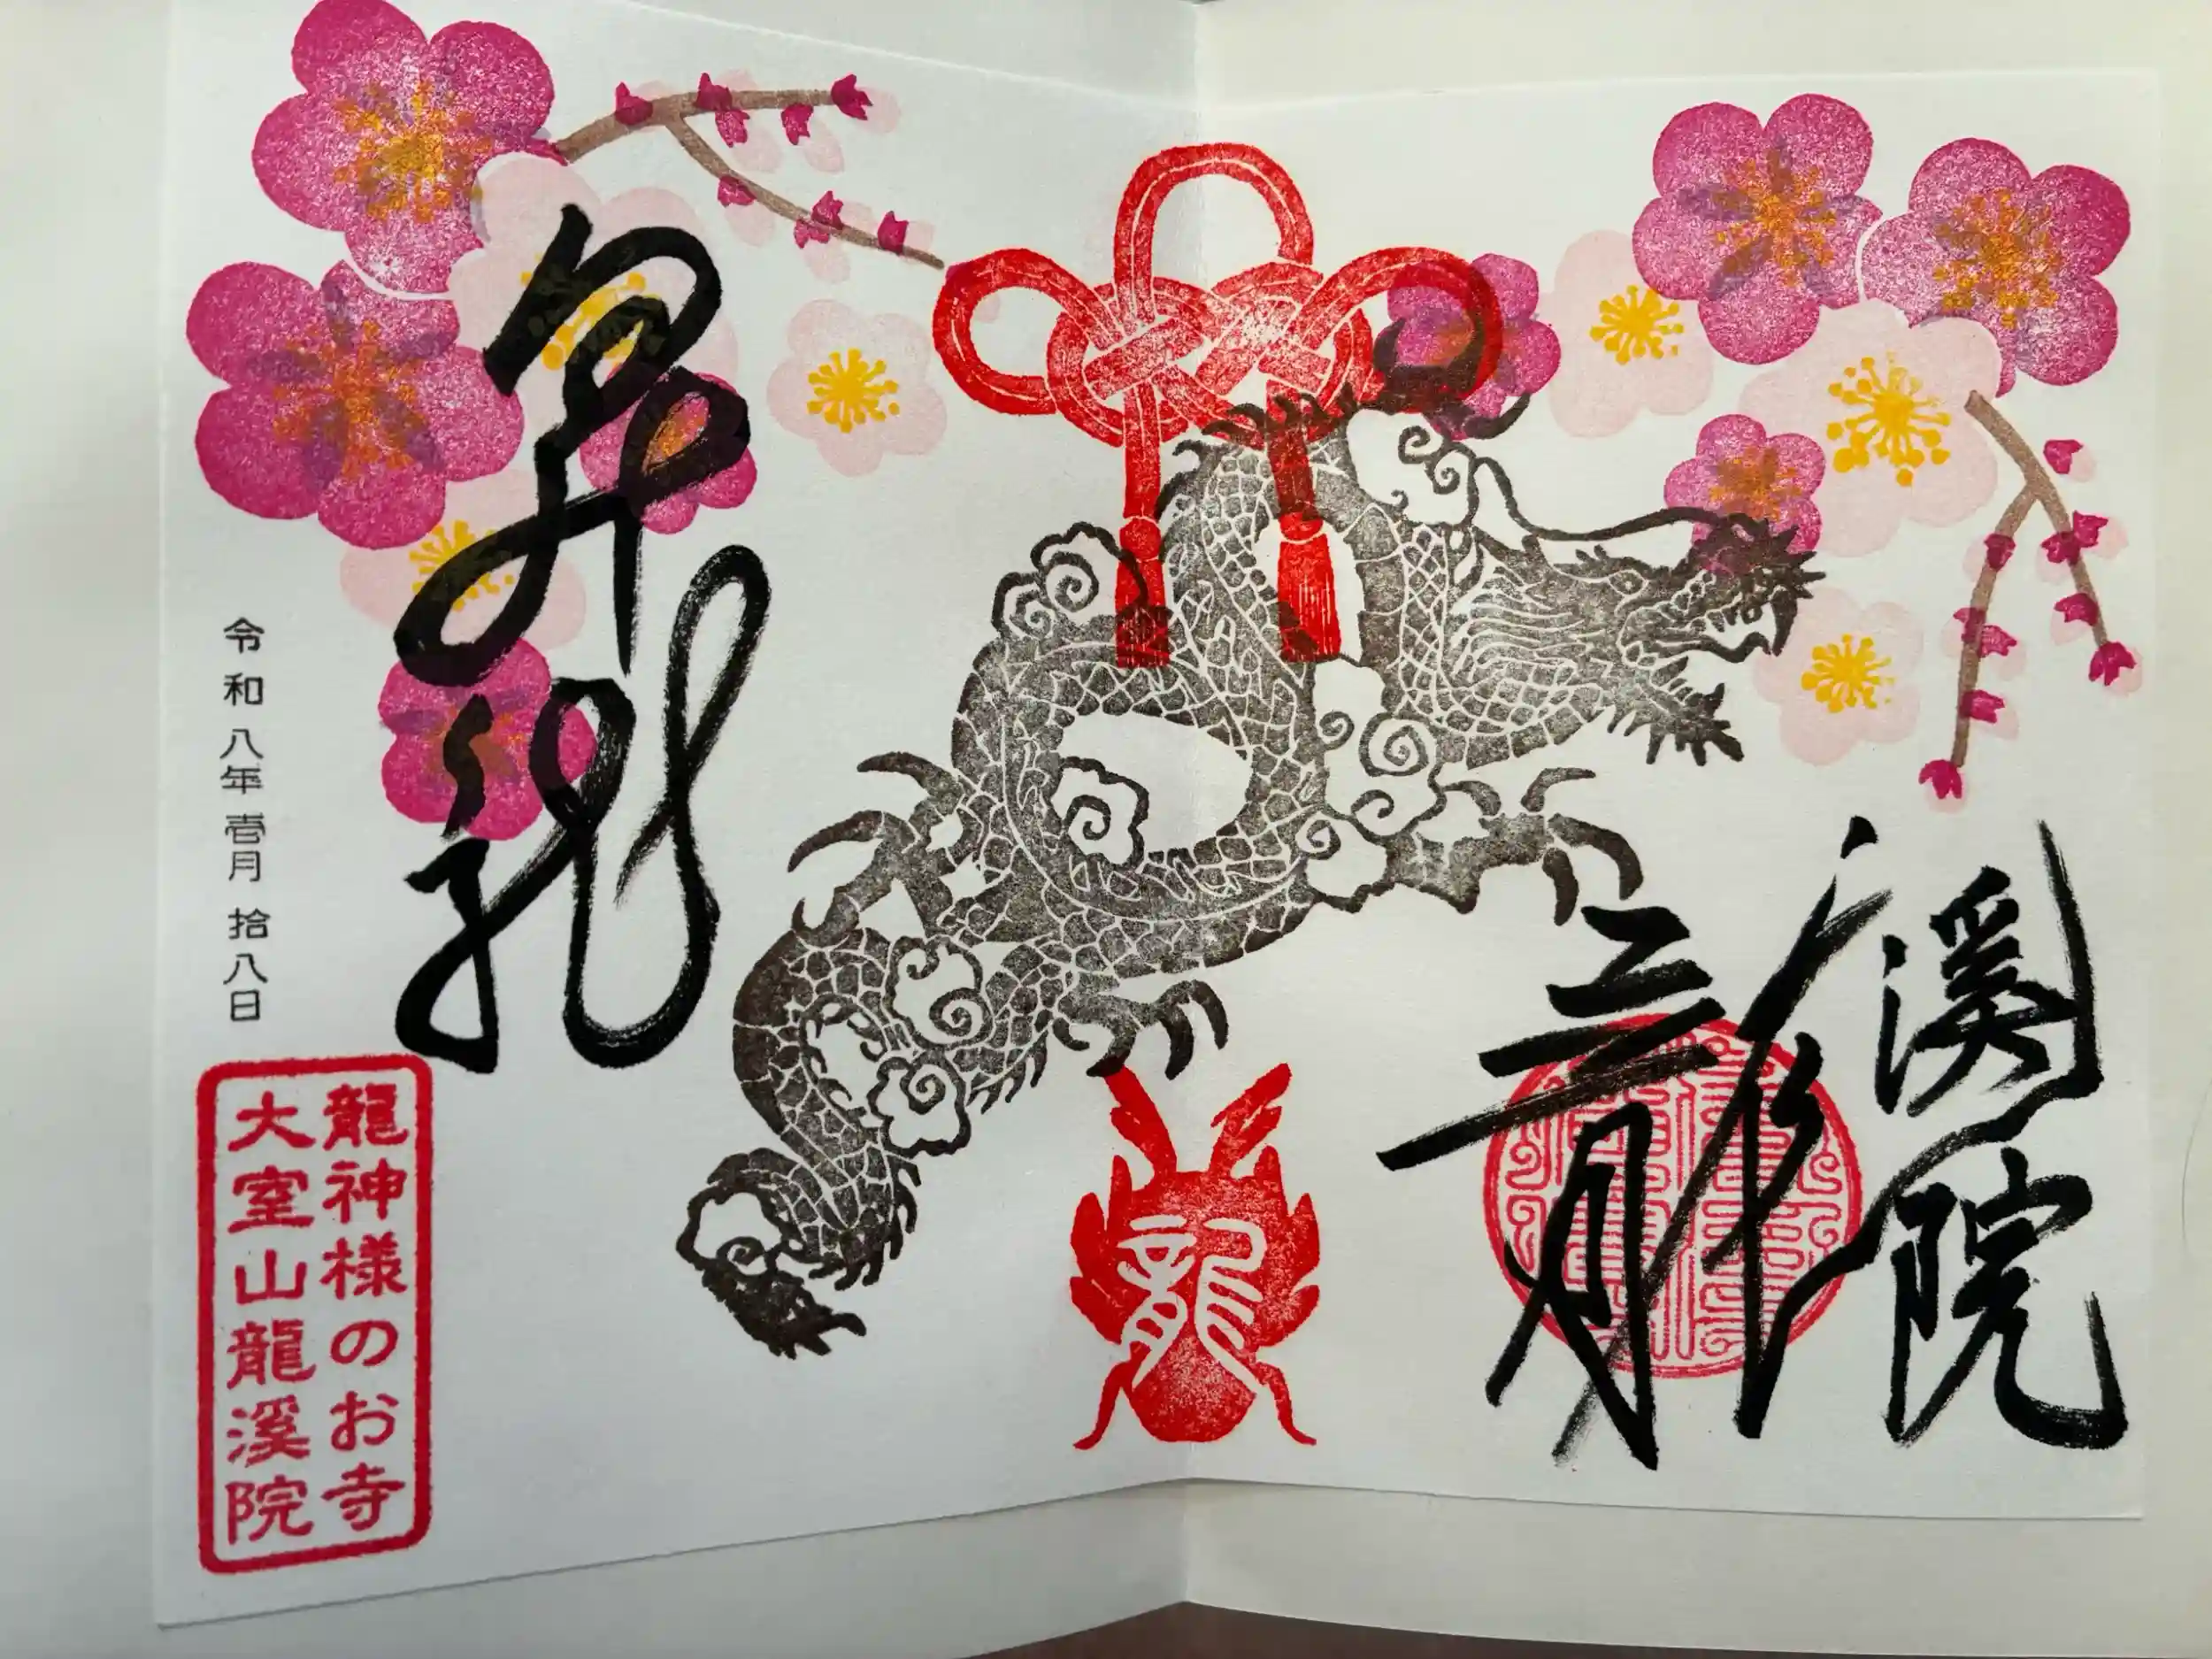 龍溪院
龍
昇龍
令和八年壱月拾八日
龍神様のお寺
大室山龍溪院